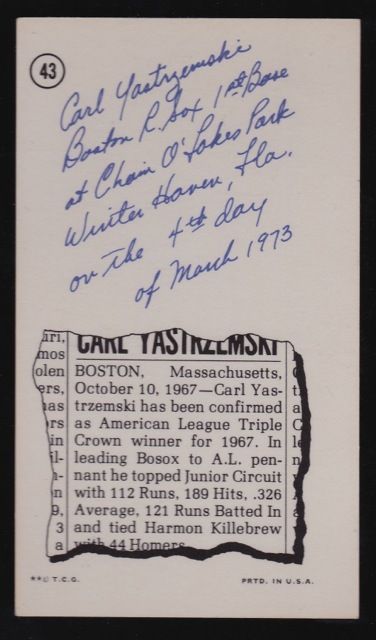 43
Carl Yastrzemski
Boston R. Sox 1st Base
at Chain O'Lakes Park
Winter Haven, Fla.
on the 4th day
of March 1973
CARL YASTRZEMSKI
iri,
mos
olen BOSTON, Massachusetts,
ers, October 10, 1967—Carl Yas-
as trzemski has been confirmed
rs as American League Triple
in Crown winner for 1967. In
il- leading Bosox to A.L. pen-
nant he topped Junior Circuit
n with 112 Runs, 189 Hits, .326
9, Average, 121 Runs Batted In
3 and tied Harmon Killebrew
a with 44 Homers.
**© T.C.G. PRTD. IN U.S.A.